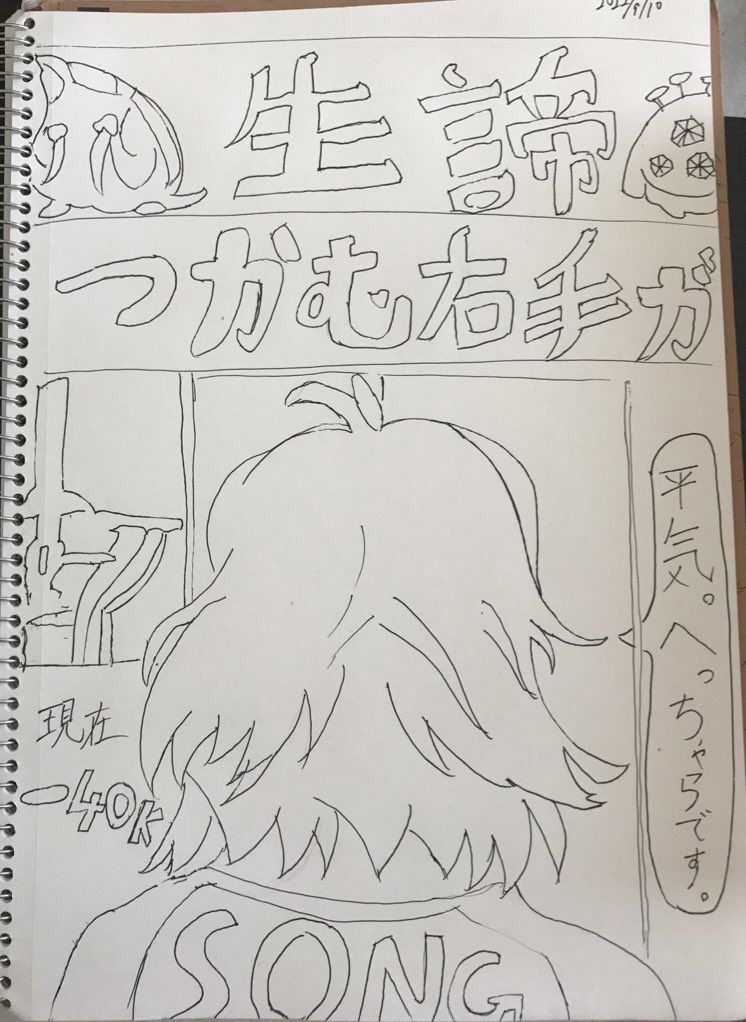 生諦
つかむ右手が
平気。へっちゃらです。
現在
-40K
SONG